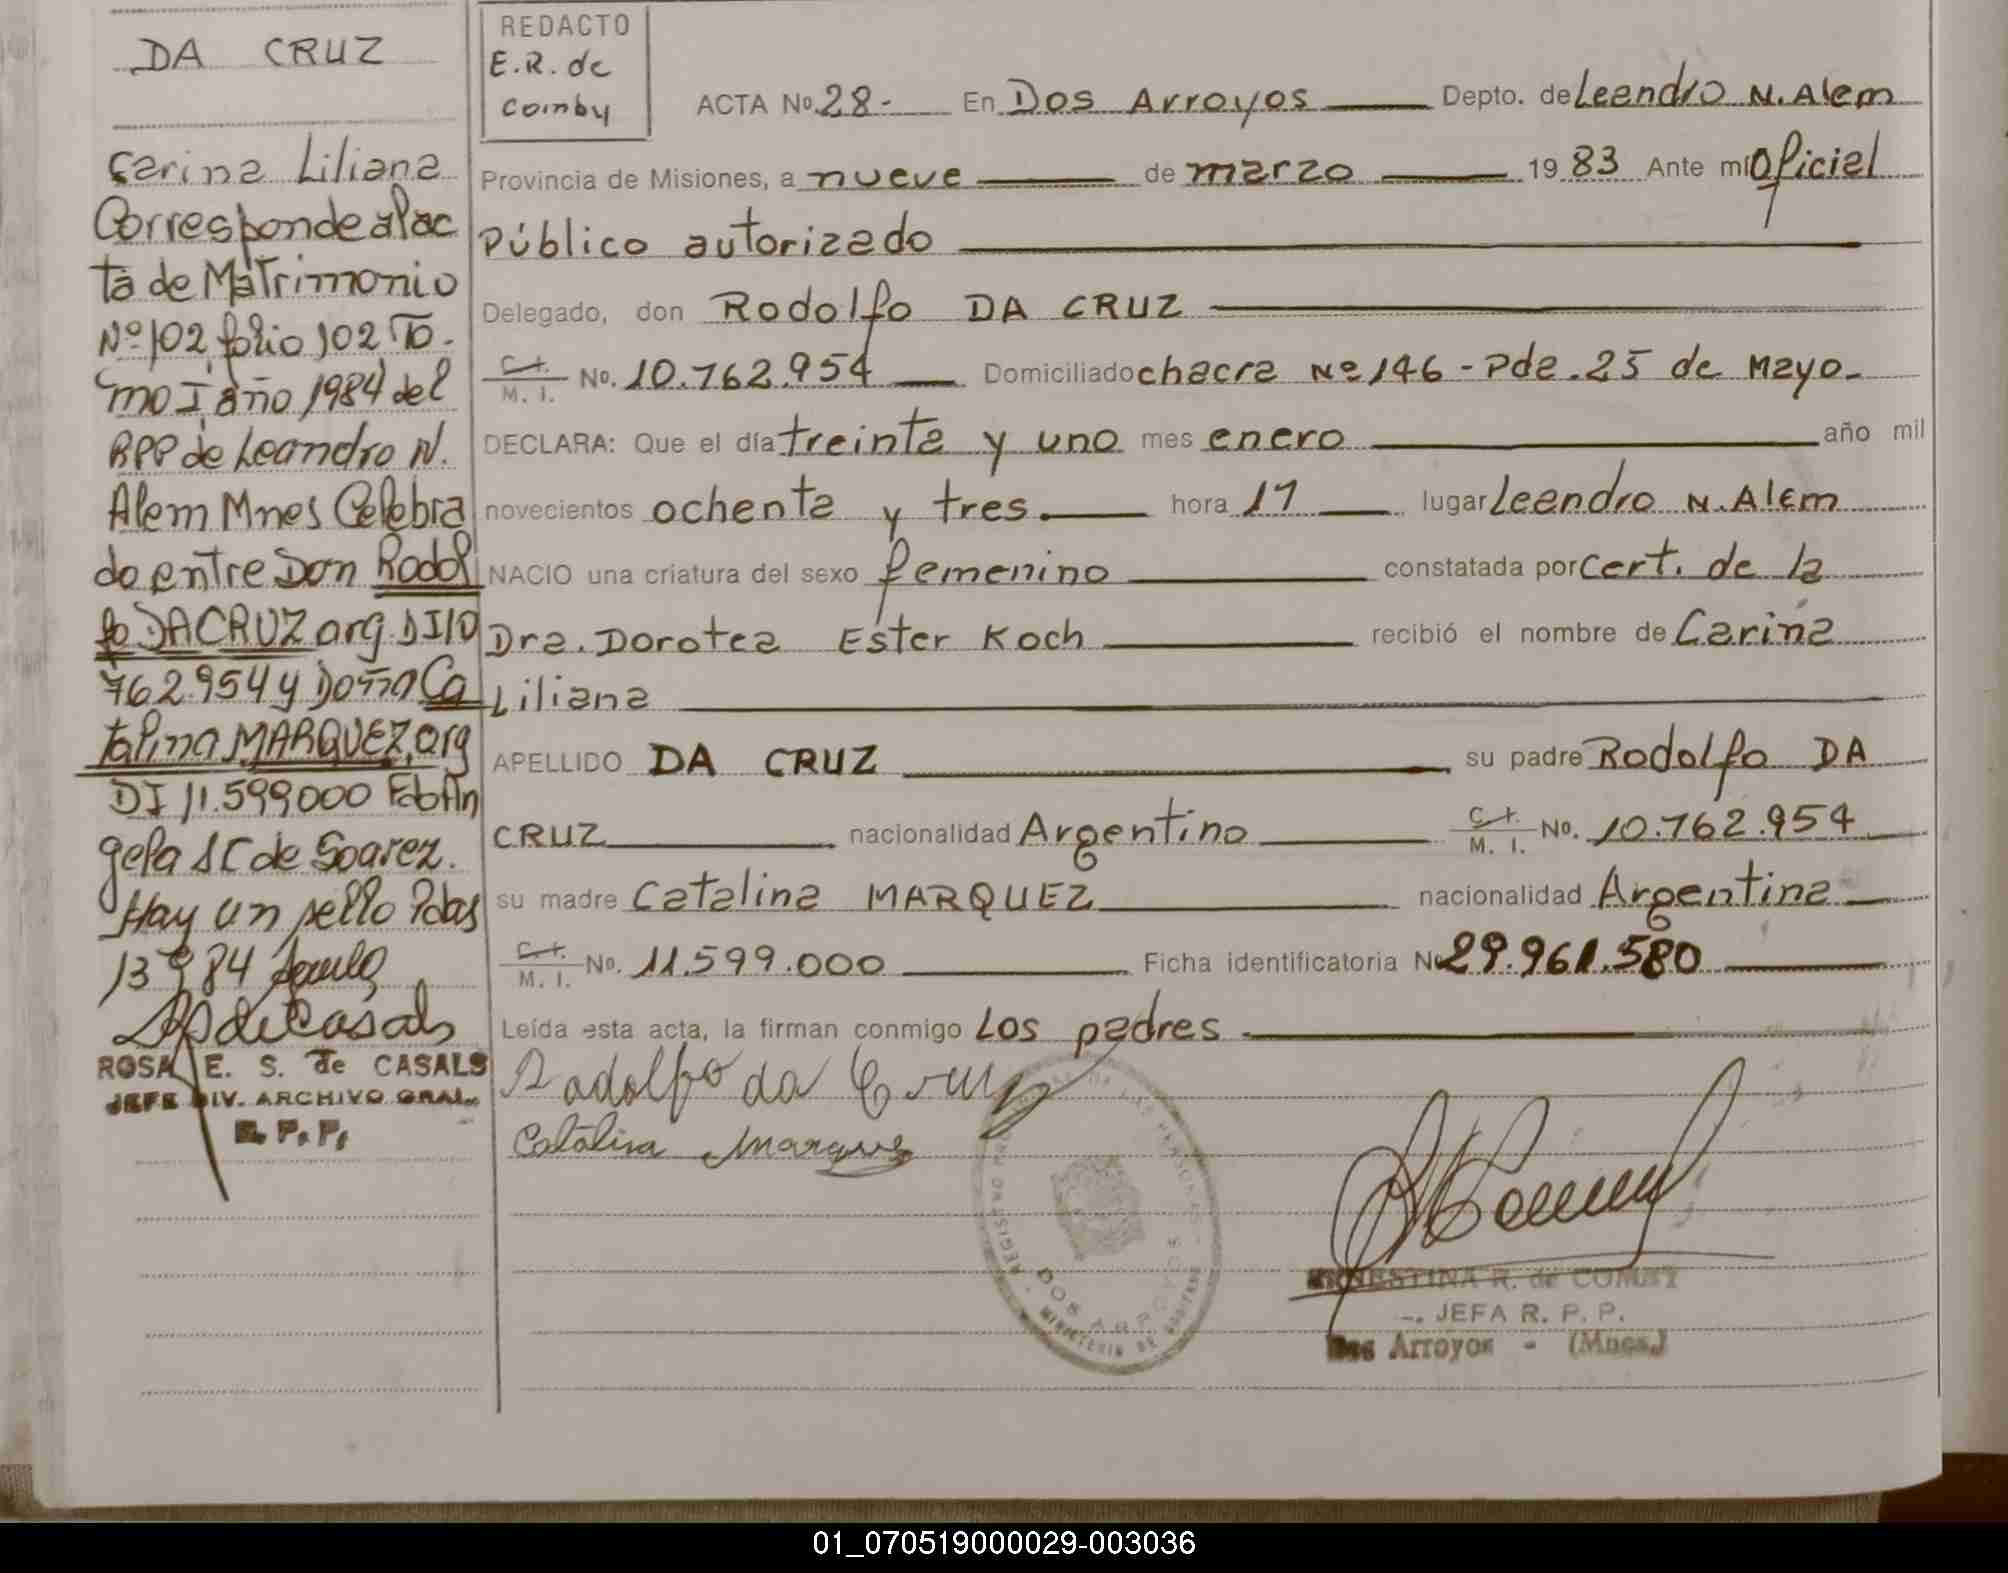 DA CRUZ
Carina Liliana
Corresponde al ac
ta de Matrimonio
Nº 102 folio 102 To-
mo I año 1984 del
RPP de Leandro N.
Alem Mnes Celebra
do entre Don Rodol
fo DA CRUZ arg. DI 10
762.954 y Doña Ca
talina MARQUEZ, arg
DI 11.599.000
de Soarez.
Hay un sello Pdas
13 84
ROSA E. S. de CASALS
JEFE DIV. ARCHIVO GRAL.
R. P. P.
REDACTO
E.R. de
Comby
ACTA No. 28- En Dos Arroyos Depto. de Leandro N. Alem
Provincia de Misiones, a nueve de marzo 19 83 Ante mí Oficial
Público autorizado
Delegado, don Rodolfo DA CRUZ
C. I. M. I. No. 10.762.954 Domiciliado chacra Nº 146 - Pda. 25 de Mayo-
DECLARA: Que el día treinta y uno mes enero año mil
novecientos ochenta y tres. hora 17 lugar Leandro N. Alem
NACIO una criatura del sexo femenino constatada por cert. de la
Dra. Dorotea Ester Koch recibió el nombre de Carina
Liliana
APELLIDO DA CRUZ su padre Rodolfo DA
CRUZ nacionalidad Argentino C. I. M. I. No. 10.762.954
su madre Catalina MARQUEZ nacionalidad Argentina
C. I. M. I. No. 11.599.000 Ficha identificatoria Nº 29.961.580
Leída esta acta, la firman conmigo Los padres
Rodolfo da Cruz
Catalina Marques
REGISTRO PROVINCIAL DE LAS PERSONAS
DOS ARROYOS
MINISTERIO DE GOBIERNO
ERNESTINA R. de COMBY
JEFA R. P. P.
Dos Arroyos - (Mnes.)
01_070519000029-003036